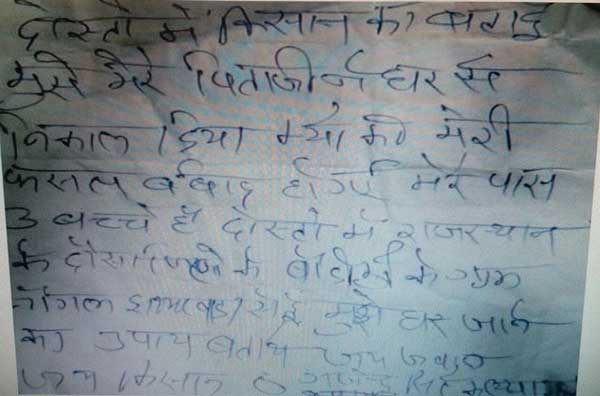 दोस्तो में किसान का बेटा हु
मुझे मेरे पिताजी ने घर से
निकाल दिया क्यो की मेरी
फसल बर्बाद होगई मेरे पास
3 बच्चे है दोस्तो में राजस्थान
के दौसा जिले के बांदीकुई के ग्राम
नांगल झामरवाडा मुझे घर जाने
का उपाय बताये जय जवान
जय किसान